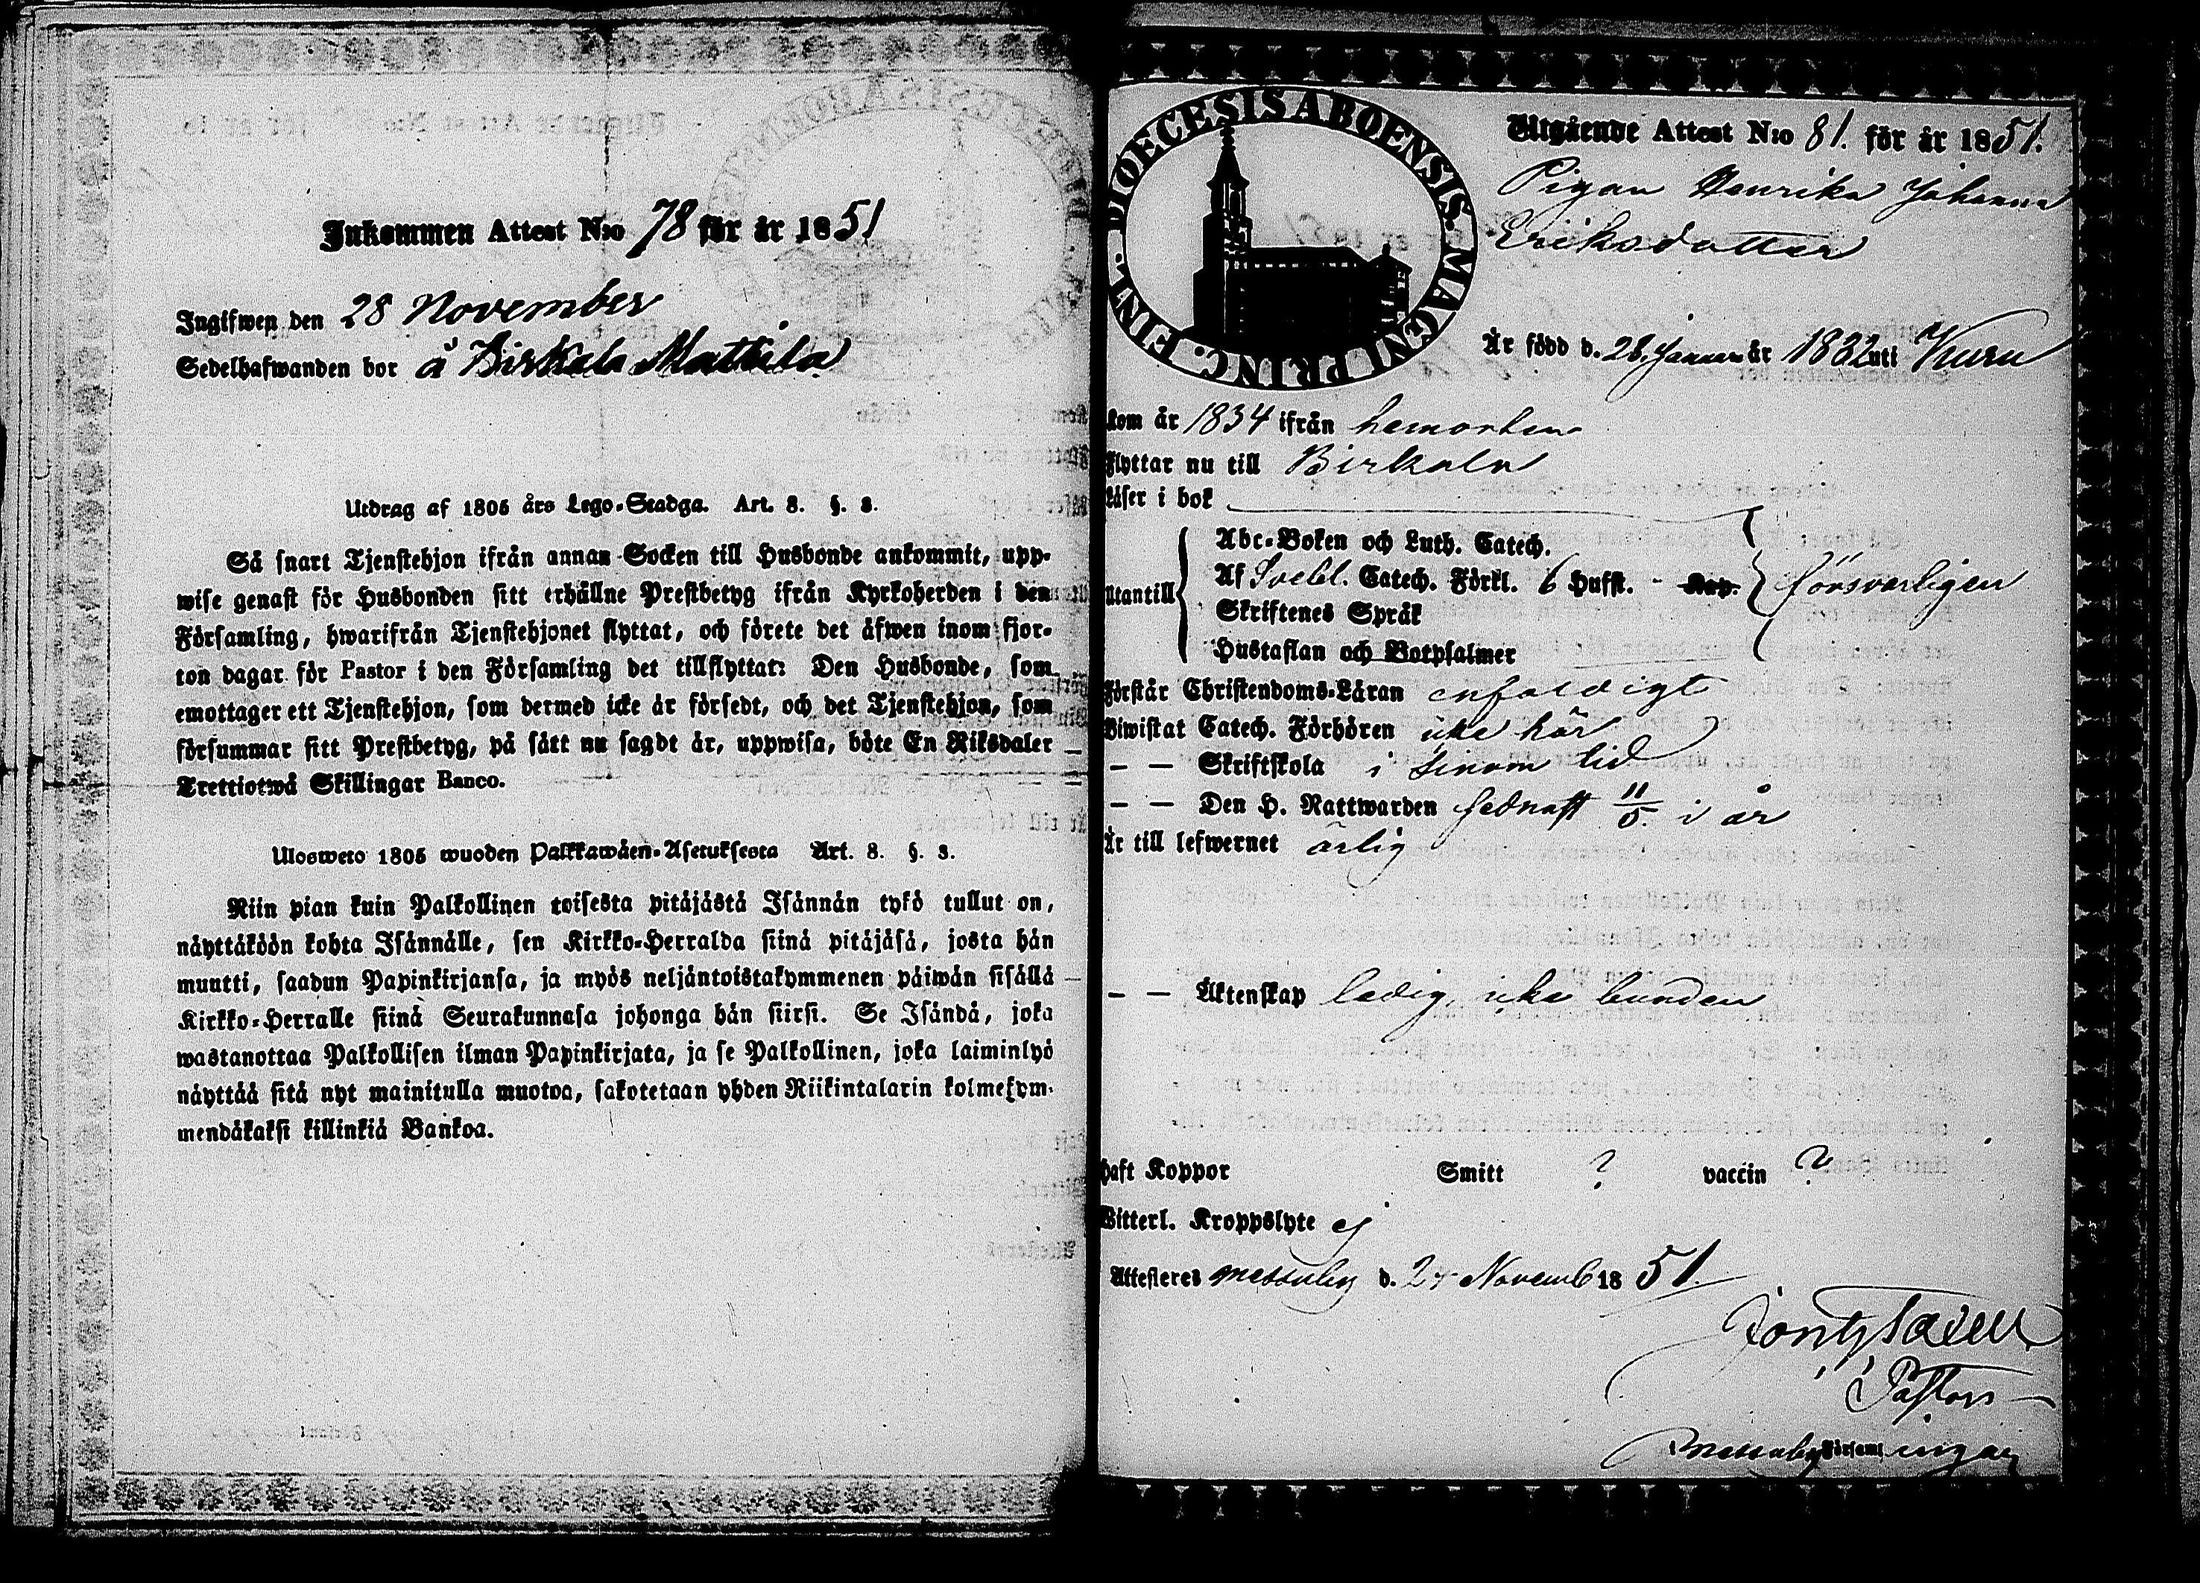 Inkommen Attest N:o 78 för år 1851
Ingifwen den 28 November
Sedelhafwanden bor å Birkala Mattila
Utdrag af 1805 års Lego-Stadga. Art. 8. §. 3.
Så snart Tjenstehjon ifrån annan Socken till Husbonde ankommit, upp-
wise genast för Husbonden sitt erhållne Prestbetyg ifrån Kyrkoherden i den
Församling, hwarifrån Tjenstehjonet flyttat, och förete det äfwen inom fjor-
ton dagar för Pastor i den Församling det tillflyttat: Den Husbonde, som
emottager ett Tjenstehjon, som dermed icke är försedt, och det Tjenstehjon, som
försummar sitt Prestbetyg, på sätt nu sagdt är, uppwisa, böte En Riksdaler
Trettiotwå Skillingar Banco.
Ulosweto 1805 wuoden Palkkawäen-Asetuksesta Art. 8. §. 3.
Niin pian kuin Palkollinen toisesta pitäjästä Isännän tykö tullut on,
näyttäköön kohta Isännälle, sen Kirkko-Herralda siinä pitäjäsä, josta hän
muutti, saadun Papinkirjansa, ja myös neljäntoistakymmenen päiwän sisällä
Kirkko-Herralle siinä Seurakunnasa johonga hän siirsi. Se Isändä, joka
wastanottaa Palkollisen ilman Papinkirjata, ja se Palkollinen, joka laiminlyö
näyttää sitä nyt mainitulla muotoa, sakotetaan yhden Riikintalarin kolmekym-
mendäkaksi killinkiä Bankoa.
DIOECESIS ABOENSIS. MAGNI PRINC. FINL.
Utgående Attest N:o 81. för år 1851.
Pigan Henrika Johanna
Eriksdotter
Är född d. 28 Januari år 1832 uti Kuru
kom år 1834 ifrån hemorten
Flyttar nu till Birkala
Läser i bok
Abc-Boken och Luth. Catech.
Utantill Af Svebel. Catech. Förkl. 6 Hufst. - Kap. försvarligen
Skriftenes Språk
Hustaflan och Botpsalmer
Förstår Christendoms-Läran enfaldigt
Biwistat Catech. Förhören icke här
— — Skriftskola i sinom tid
— — Den H. Nattwarden sednast 11/5. i år
Är till lefwernet ärlig
— — Äktenskap ledig, icke bunden
haft Koppor Smitt ? vaccin ?
Witterl. Kroppslyte ej
Attesteras Messuby d. 27 Novemb 1851.
Pastor
Messuby Församlingar